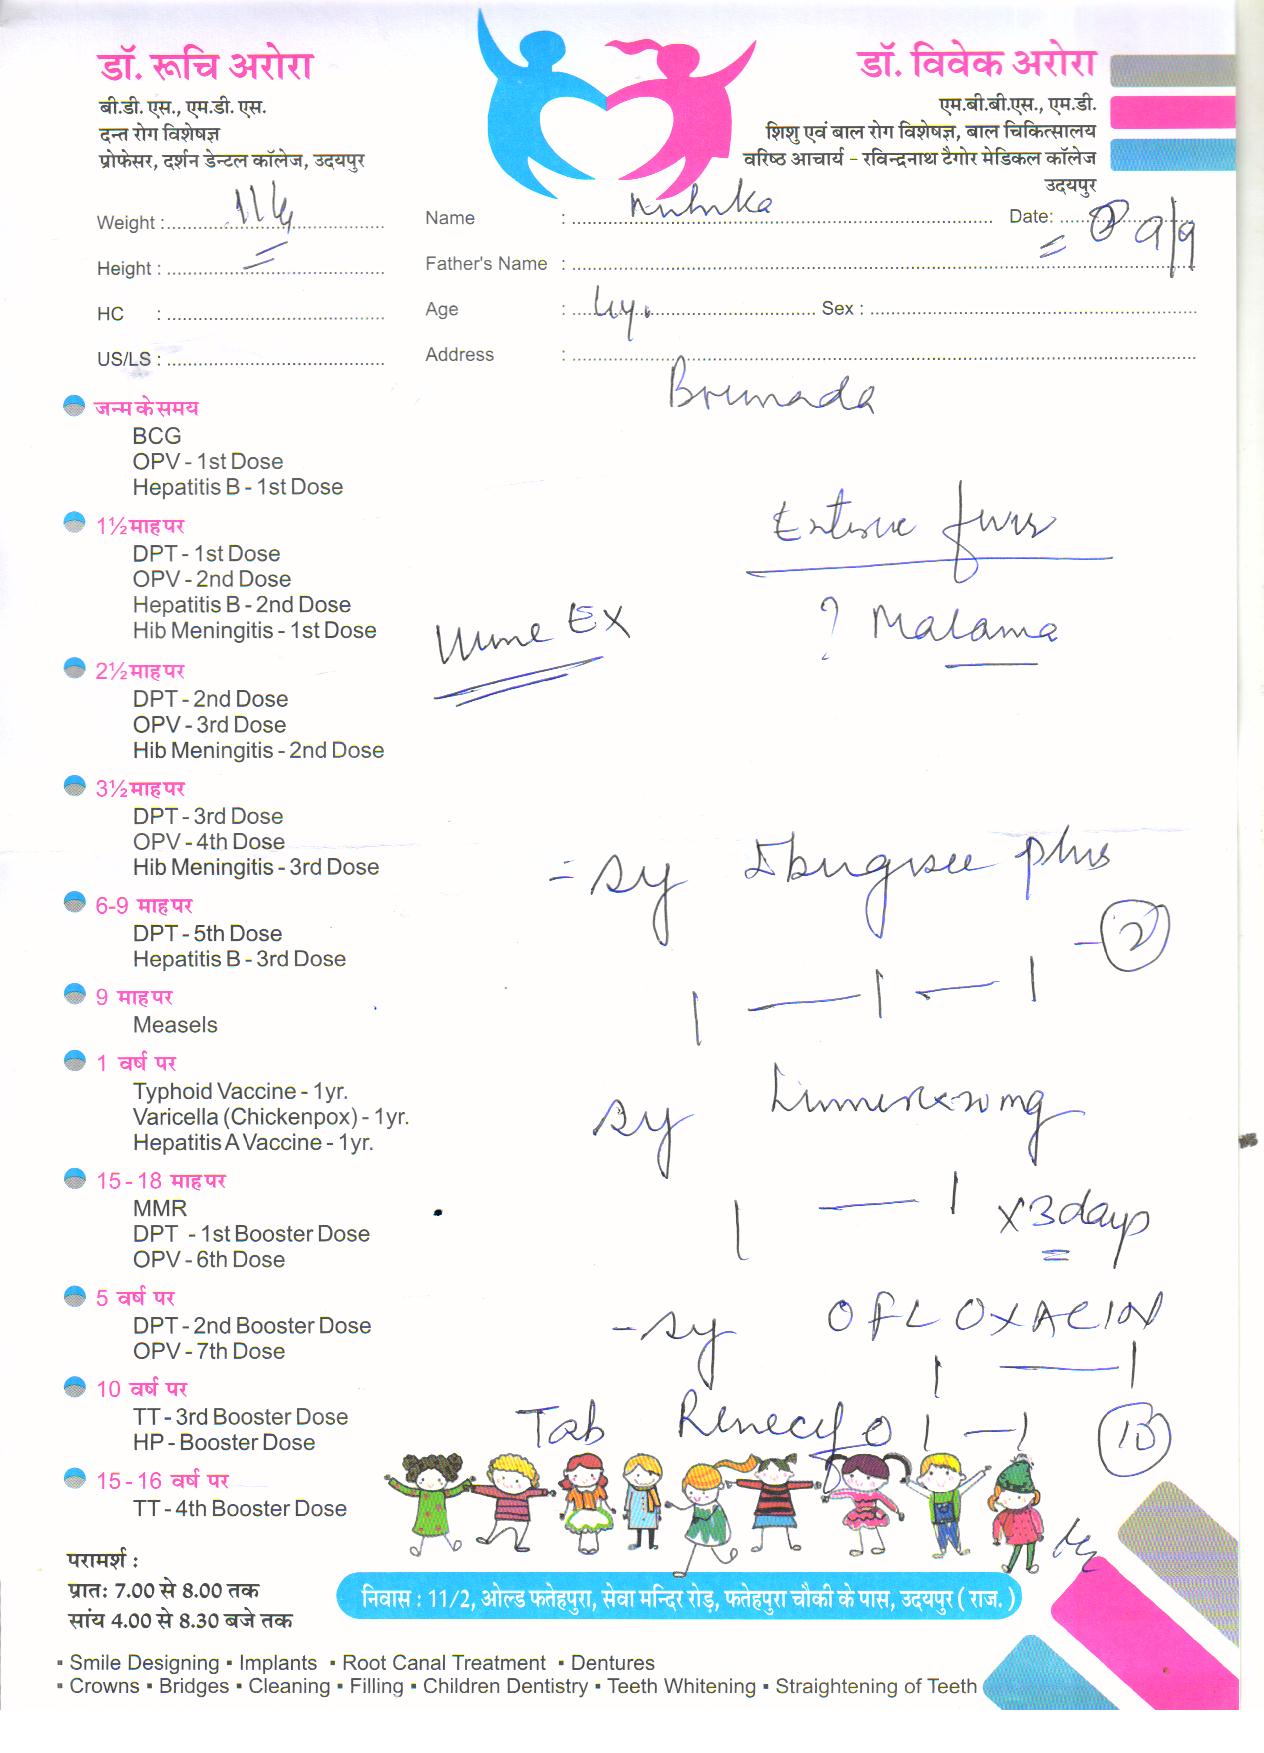 डॉ. रूचि अरोरा
बी.डी. एस., एम.डी. एस.
दन्त रोग विशेषज्ञ
प्रोफेसर, दर्शन डेन्टल कॉलेज, उदयपुर
डॉ. विवेक अरोरा
एम.बी.बी.एस., एम.डी.
शिशु एवं बाल रोग विशेषज्ञ, बाल चिकित्सालय
वरिष्ठ आचार्य - रविन्द्रनाथ टैगोर मेडिकल कॉलेज
उदयपुर
Weight : Name : Date: 9/9
Height : Father's Name :
HC : Age : Sex :
US/LS : Address :
जन्म के समय
BCG
OPV - 1st Dose
Hepatitis B - 1st Dose
1½ माह पर
DPT - 1st Dose
OPV - 2nd Dose
Hepatitis B - 2nd Dose
Hib Meningitis - 1st Dose
2½ माह पर
DPT - 2nd Dose
OPV - 3rd Dose
Hib Meningitis - 2nd Dose
3½ माह पर
DPT - 3rd Dose
OPV - 4th Dose
Hib Meningitis - 3rd Dose
6-9 माह पर
DPT - 5th Dose
Hepatitis B - 3rd Dose
9 माह पर
Measels
1 वर्ष पर
Typhoid Vaccine - 1yr.
Varicella (Chickenpox) - 1yr.
Hepatitis A Vaccine - 1yr.
15 - 18 माह पर
MMR
DPT - 1st Booster Dose
OPV - 6th Dose
5 वर्ष पर
DPT - 2nd Booster Dose
OPV - 7th Dose
10 वर्ष पर
TT - 3rd Booster Dose
HP - Booster Dose
15 - 16 वर्ष पर
TT - 4th Booster Dose
? Malaria
= Sy plus
1 — 1 — 1
Sy
1 — 1 x 3 days
- Sy OFLOXACIN
1 — 1
Tab 1 — 1 10
परामर्श :
प्रातः 7.00 से 8.00 तक
सांय 4.00 से 8.30 बजे तक
निवास : 11/2, ओल्ड फतेहपुरा, सेवा मन्दिर रोड़, फतेहपुरा चौकी के पास, उदयपुर ( राज. )
▪ Smile Designing ▪ Implants ▪ Root Canal Treatment ▪ Dentures
▪ Crowns ▪ Bridges ▪ Cleaning ▪ Filling ▪ Children Dentistry ▪ Teeth Whitening ▪ Straightening of Teeth